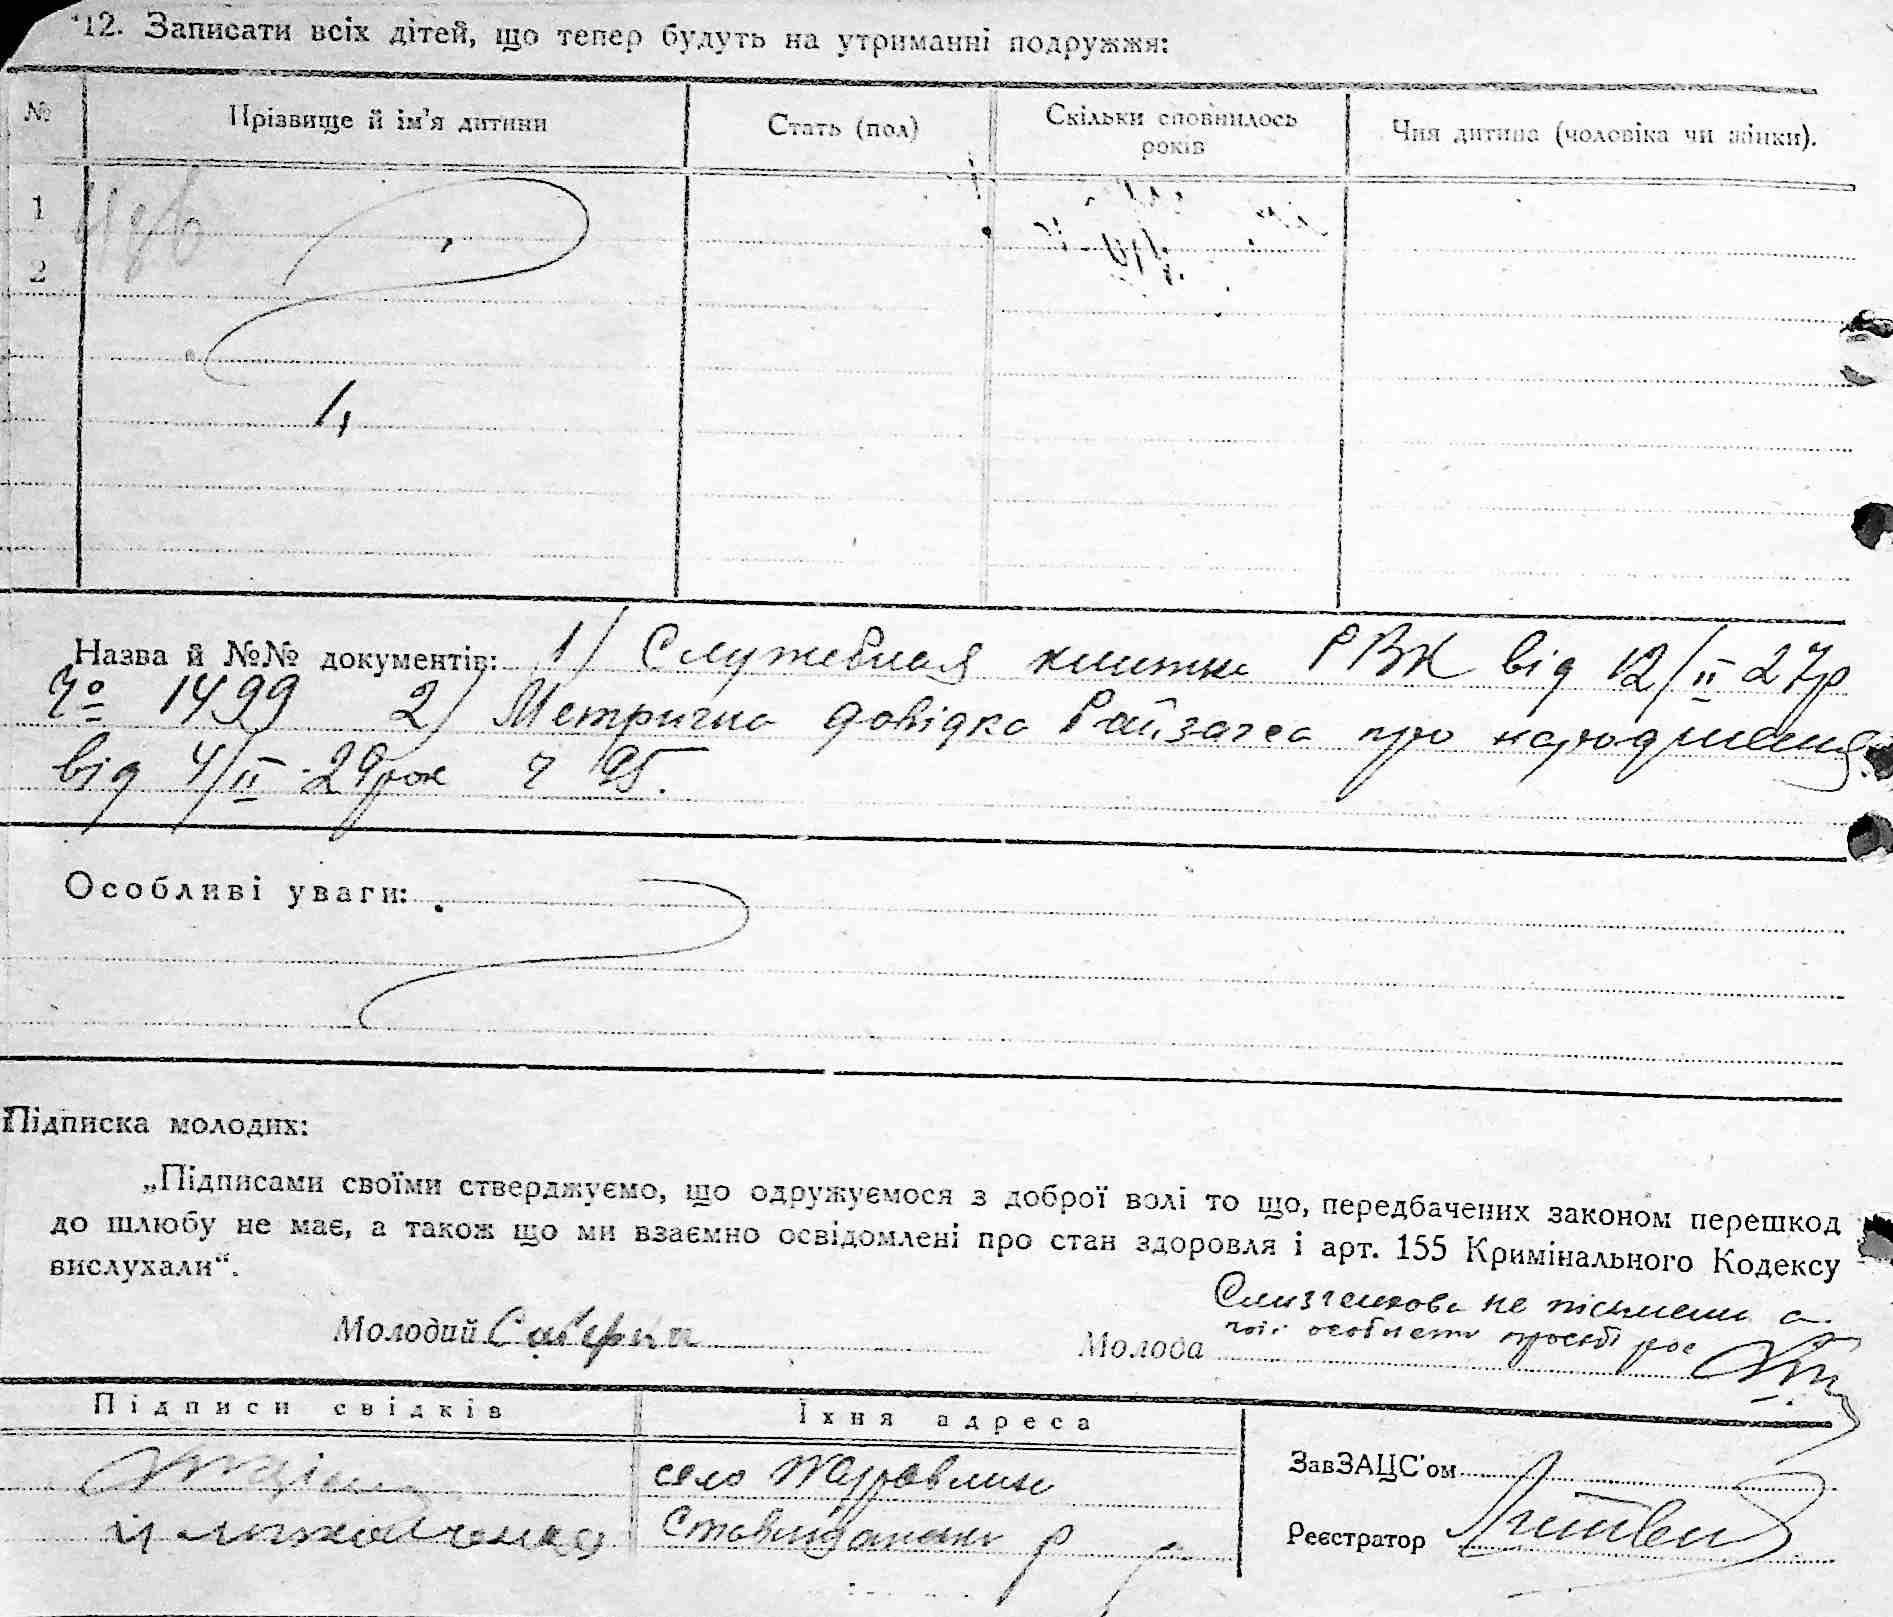 12. Записати всіх дітей, що тепер будуть на утриманні подружжя:
№ Прізвище й ім'я дитини Стать (пол) Скільки сповнилось років Чия дитина (чоловіка чи жінки).
1
2
Назва й №№ документів: 1/ Служебная книжка РВК від 12/II 27р
№ 1499 2/ Метрична довідка Райзагса про народження
від 4/II-29рок ч 95.
Особливі уваги:
Підписка молодих:
„Підписами своїми стверджуємо, що одружуємося з доброї волі то що, передбачених законом перешкод
до шлюбу не має, а також що ми взаємно освідомлені про стан здоровля і арт. 155 Кримінального Кодексу
вислухали“.
не письменн а
Молодий Молода особистій просьбі рос
Підписи свідків Їхня адреса
село Журавлин
ЗавЗАЦС'ом
р
Реєстратор Литвин